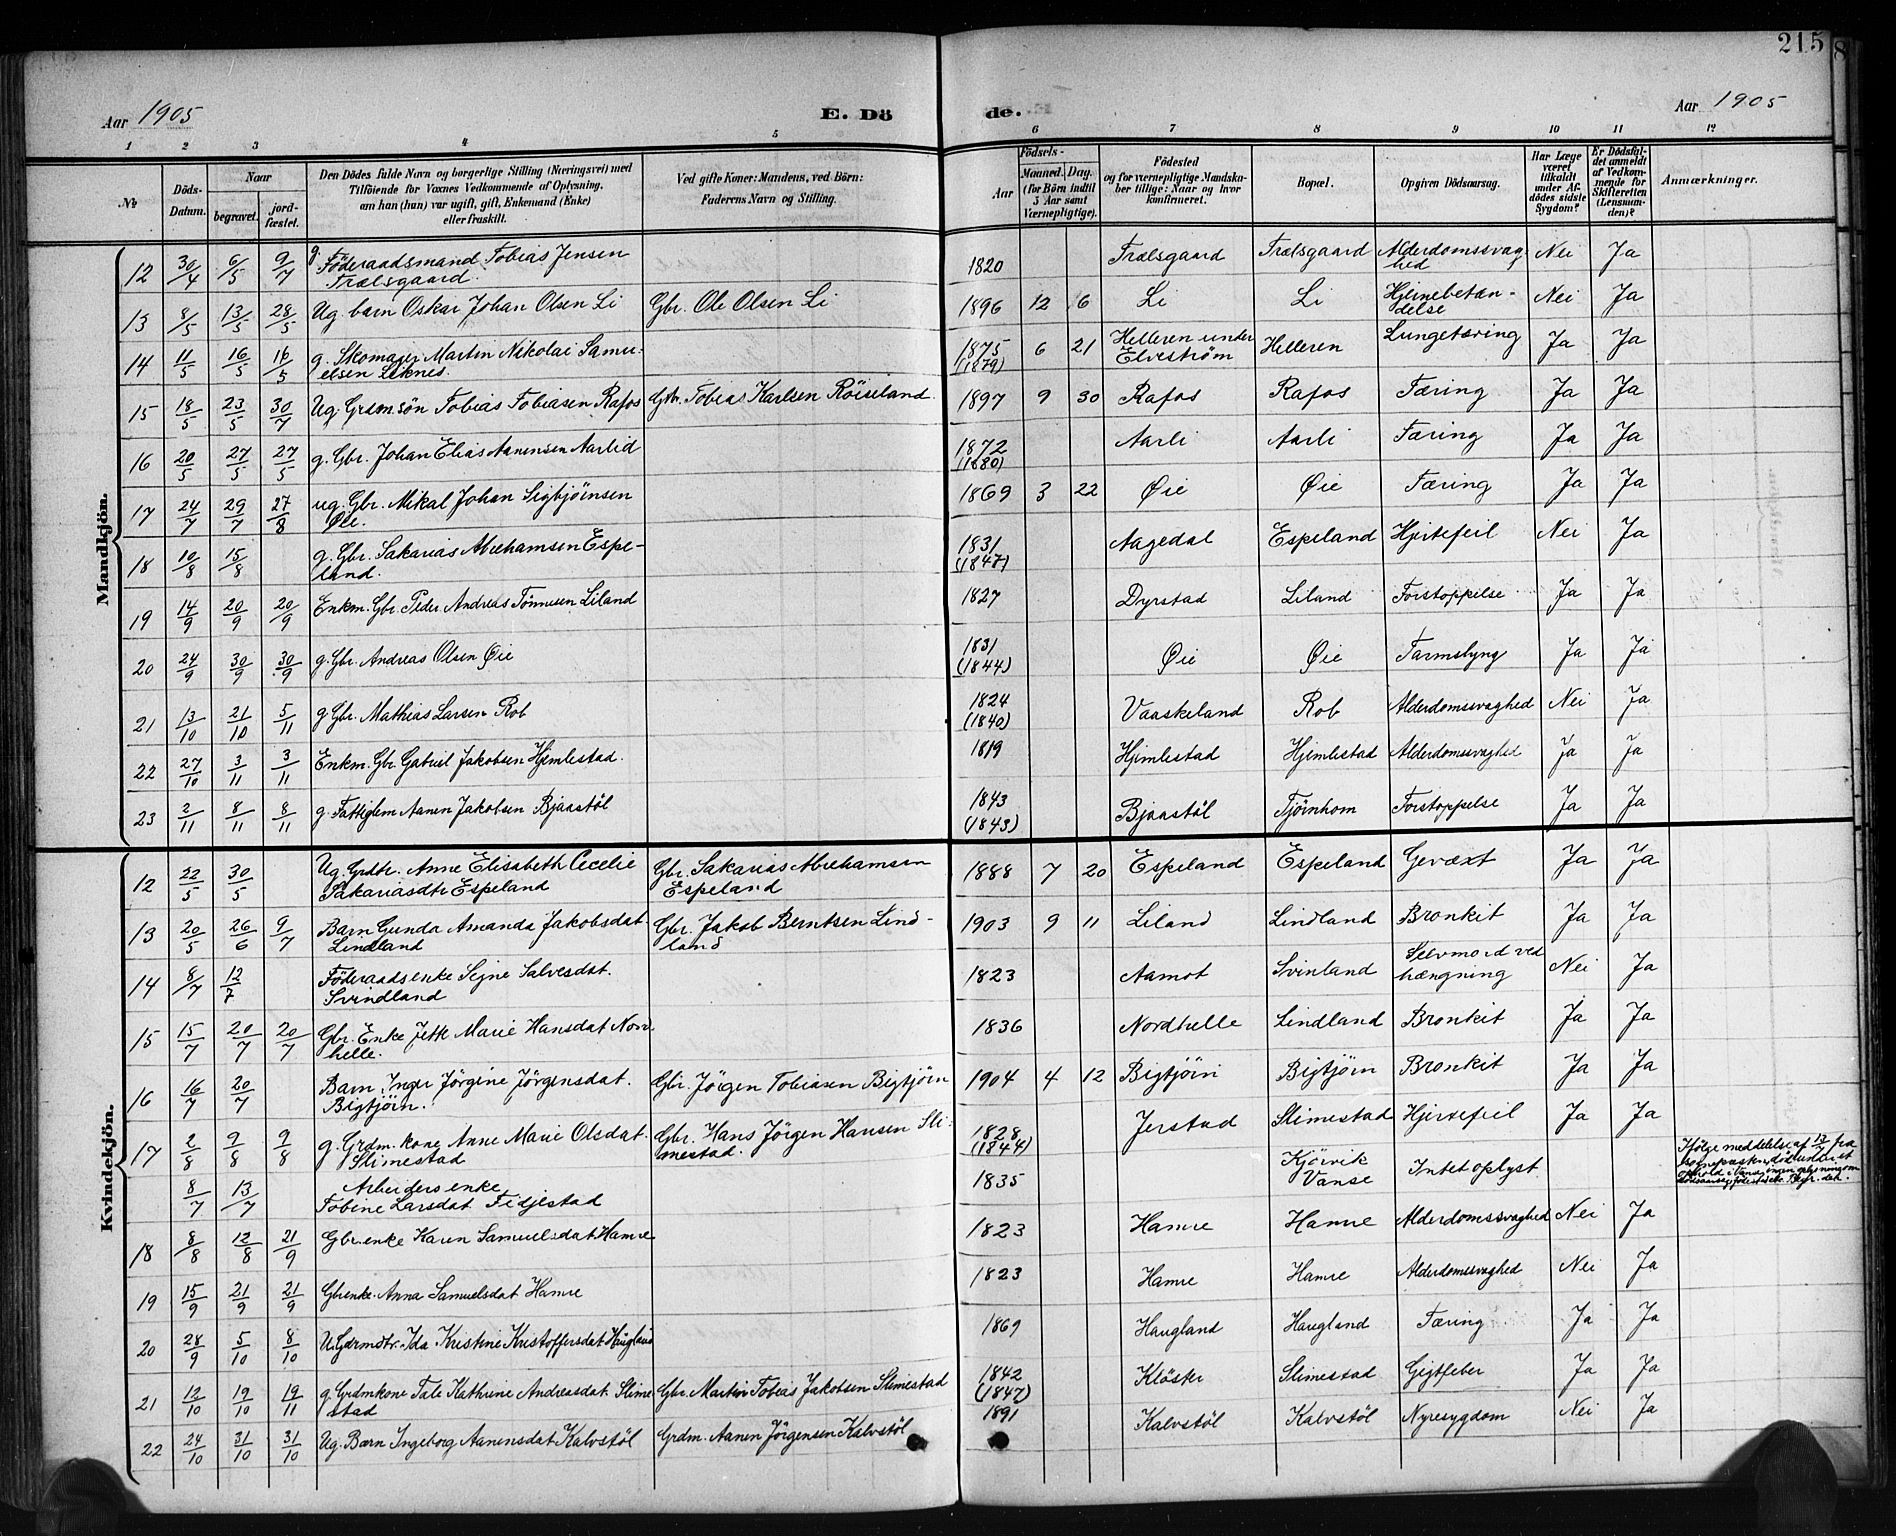 215
Aar 1905 E. Dö de. Aar 1905
1 2 3 4 5 6 7 8 9 10 11 12
№ Döds-Datum. Naar begravet. jordfæstet. Den Dödes fulde Navn og borgerlige Stilling (Næringsvei) med Tilföiende for Voxnes Vedkommende af Oplysning, om han (hun) var ugift, gift, Enkemand (Enke) eller fraskilt. Ved gifte Koner: Mandens, ved Börn: Faderens Navn og Stilling. Födsels- Aar Maaned. Dag. (for Börn indtil 5 Aar samt Værnepligtige). Födested og for værnepligtige Mandskaber tillige: Naar og hvor konfirmeret. Bopæl. Opgiven Dödsaarsag. Har Læge været tilkaldt under Afdödes sidste Sygdom? Er Dödsfaldet anmeldt af Vedkommende for Skifteretten (Lensmanden)? Anmærkninger.
Mandkjön.
12 30/4 6/5 9/7 g. Föderaadsmand Tobias Jensen Trælsgaard. 1820 Trælsgaard Trælsgaard Alderdomssvaghed Nei Ja
13 8/5 13/5 28/5 Ug. barn Oskar Johan Olsen Li Gbr. Ole Olsen Li 1896 12 6 Li Li Hjernebetændelse Nei Ja
14 11/5 16/5 16/5 g. Skomager Martin Nikolai Samuelsen Liknes. 1875 (1879) 6 21 Helleren under Elveström Helleren Lungetæring Ja Ja
15 18/5 23/5 30/7 Ug. Grdmsön Tobias Tobiasen Rafos Gbr. Tobias Karlsen Röiseland. 1897 9 30 Rafos Rafos Tæring Ja Ja
16 20/5 27/5 27/5 g. Gbr. Johan Elias Aanensen Aarlid 1872 (1880) Aarli Aarli Tæring Ja Ja
17 24/7 29/7 27/8 ug. Gbr. Mikal Johan Sigbjörnsen Øie. 1869 3 22 Øie Øie Tæring Ja Ja
18 10/8 15/8 g. Gbr. Sakarias Abrahamsen Espeland. 1831 (1847) Aagedal Espeland Hjertefeil Nei Ja
19 14/9 20/9 20/9 Enkm. Gbr. Peder Andreas Tönnesen Liland 1827 Dyrstad Liland Forstoppelse Ja Ja
20 24/9 30/9 30/9 g. Gbr. Andreas Olsen Øie 1831 (1844) Øie Øie Tarmslyng Ja Ja
21 13/10 21/10 5/11 g Gbr. Mathias Larsen Rob 1824 (1840) Vaaskeland Rob Alderdomssvaghed Nei Ja
22 27/10 3/11 3/11 Enkm. Gbr. Gabriel Jakobsen Hjemlestad. 1819 Hjemlestad Hjemlestad Alderdomssvaghed Ja Ja
23 2/11 8/11 8/11 g. Fattiglem Aanen Jakobsen Bjaastöl 1843 (1843) Bjaastöl Tjörnhom Forstoppelse Ja Ja
Kvindekjön.
12 22/5 30/5 Ug. Grdtr. Anne Elisabeth Cecelie Sakariasdtr Espeland Gbr. Sakarias Abrahamsen Espeland 1888 7 20 Espeland Espeland Gevæxt Ja Ja
13 20/5 26/6 9/7 Barn Gunda Amanda Jakobsdat. Lindland Gbr. Jakob Berntsen Lindland 1903 9 11 Liland Lindland Bronkit Ja Ja
14 8/7 12/7 Föderaadsenke Signe Salvesdat. Svindland 1823 Aamot Svinland Selvmord ved hængning Nei Ja
15 15/7 20/7 20/7 Gbr. Enke Jette Marie Hansdat Nordhelle. 1836 Nordhelle Lindland Bronkit Ja Ja
16 16/7 20/7 Barn Inger Jörgine Jörgensdat. Bigtjörn. Gbr. Jörgen Tobiasen Bigtjörn 1904 4 12 Bigtjörn Bigtjörn Bronkit Ja Ja
17 2/8 9/8 9/8 g. Grdm. kone Anne Marie Olsdat. Slimestad Gbr. Hans Jörgen Hansen Slimestad. 1828 (1844) Jerstad Slimestad Hjertefeil Ja Ja
8/7 13/7 Arbeidersenke Tobine Larsdat Fidjestad 1835 Kjörvik Vanse Intet oplyst Ifölge meddelelse af fra sognepresten, död under et ophold i Vanse, ingen
18 8/8 12/8 21/9 Gbr.enke Karen Samuelsdat Hamre 1823 Hamre Hamre Alderdomssvaghed Nei Ja
19 15/9 21/9 21/9 Gbrenke. Anna Samuelsdat Hamre 1823 Hamre Hamre Alderdomssvaghed Nei Ja
20 28/9 5/10 8/10 U. Gdrmdtr. Ida Kristine Kristoffersdat Haugland 1869 Haugland Haugland Tæring Ja Ja
21 12/10 19/10 19/11 g. Grdmkone Tale Kathrine Andreasdat. Slimestad Gbr. Martin Tobias Jakobsen Slimestad 1842 (1847) Klöster Slimestad Gigtfeber Ja Ja
22 24/10 31/10 31/10 Ug. Barn Ingeborg Aanensdat Kalvstöl Grdm. Aanen Jörgensen Kalvstöl 1891 Kalvstöl Kalvstöl Nyresygdom Nei Ja